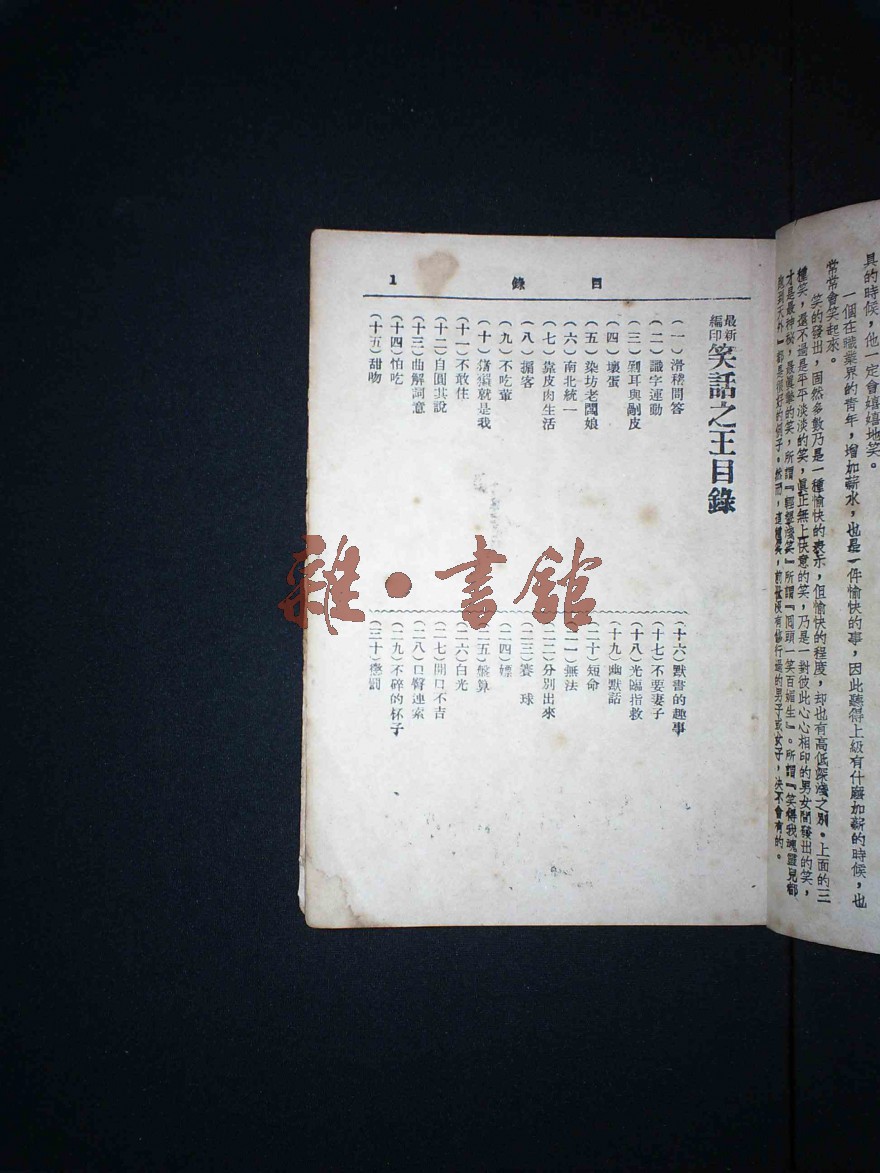 具的時候，他一定會嬉嬉地笑。
一個在職業界的青年，增加薪水，也是一件愉快的事，因此聽得上級有什麽加薪的時候，也
常常會笑起來。
笑的發出，固然多數乃是一種愉快的表示，但愉快的程度，却也有高低深淺之別。上面的三
種笑，還不過是平平淡淡的笑，眞正無上快意的笑，乃是一對彼此心心相印的男女間發出的笑，
才是最神秘，最眞摯的笑，所謂『輕顰淺笑』所謂『囘頭一笑百媚生』。所謂『笑得我魂靈兒都
目錄
1
最新編印
笑話之王目錄
（一）滑稽問答
（二）識字運動
（三）到耳與剮皮
（四）壞蛋
（五）染坊老闆娘
（六）南北統一
（七）靠皮肉生活
（八）掮客
（九）不吃葷
（十）猪玀就是我
（十一）不敢住
（十二）自圓其說
（十三）曲解詞意
（十四）怕吃
（十五）甜吻
（十六）默書的趣事
（十七）不要妻子
（十八）光臨指教
（十九）幽默話
（二十）短命
（二一）無法
（二二）分別出來
（二三）賽球
（二四）嫖
（二五）盤算
（二六）白光
（二七）開口不吉
（二八）口臀連索
（二九）不碎的杯子
（三十）懲罰
雜·書館